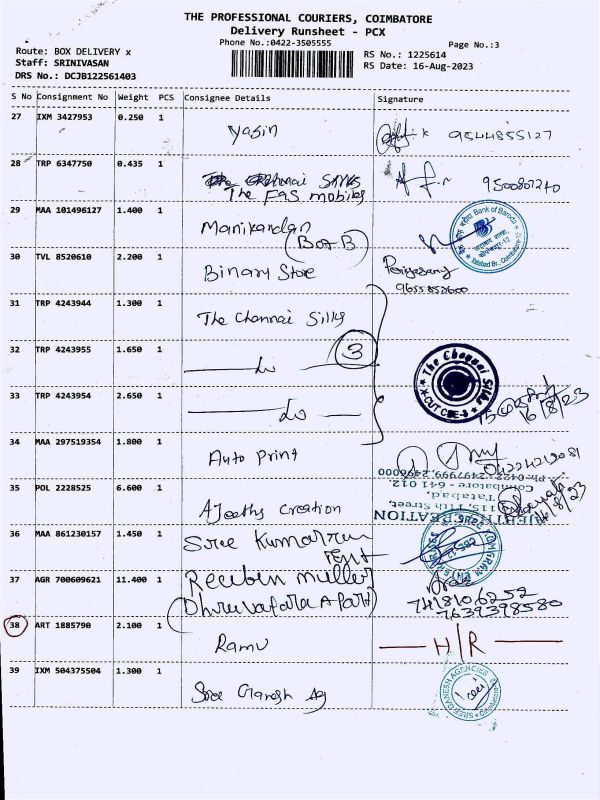 THE PROFESSIONAL COURIERS, COIMBATORE
Delivery Runsheet - PCX
Phone No.:0422-3505555
Page No.:3
Route: BOX DELIVERY x
Staff: SRINIVASAN
DRS No.: DCJB122561403
RS No.: 1225614
RS Date: 16-Aug-2023
S No Consignment No Weight PCS Consignee Details Signature
27 IXM 3427953 0.250 1 Yasin 9544855127
28 TRP 6347750 0.435 1
The FAS mobiles
29 MAA 101496127 1.400 1 Manikandan
(BOB)
Bank of Baroda
Tatabad Br., Coimbatore-12
30 TVL 8520610 2.200 1 Binary Store Periyasamy
9655852600
31 TRP 4243944 1.300 1 The Chennai Silks
32 TRP 4243955 1.650 1 Do 3
The Chennai Silks
CUT CBE-3
33 TRP 4243954 2.650 1 Do
16/8/23
34 MAA 297519354 1.800 1 Auto Print
Ph:0422-2497999, 2496000
Coimbatore - 641 012.
Tatabad,
35 POL 2228525 6.600 1 Ajeeths Creation
16/8/23
36 MAA 861230157 1.450 1 Sree Kumarran
37 AGR 700609621 11.400 1 Reuben muller
(Dhruvatara Apart)
7418106252
7639398580
38 ART 1885790 2.100 1 Ramu H/R
39 IXM 504375504 1.300 1 Sree Ganesh Ag
SREE GANESH AGENCIES